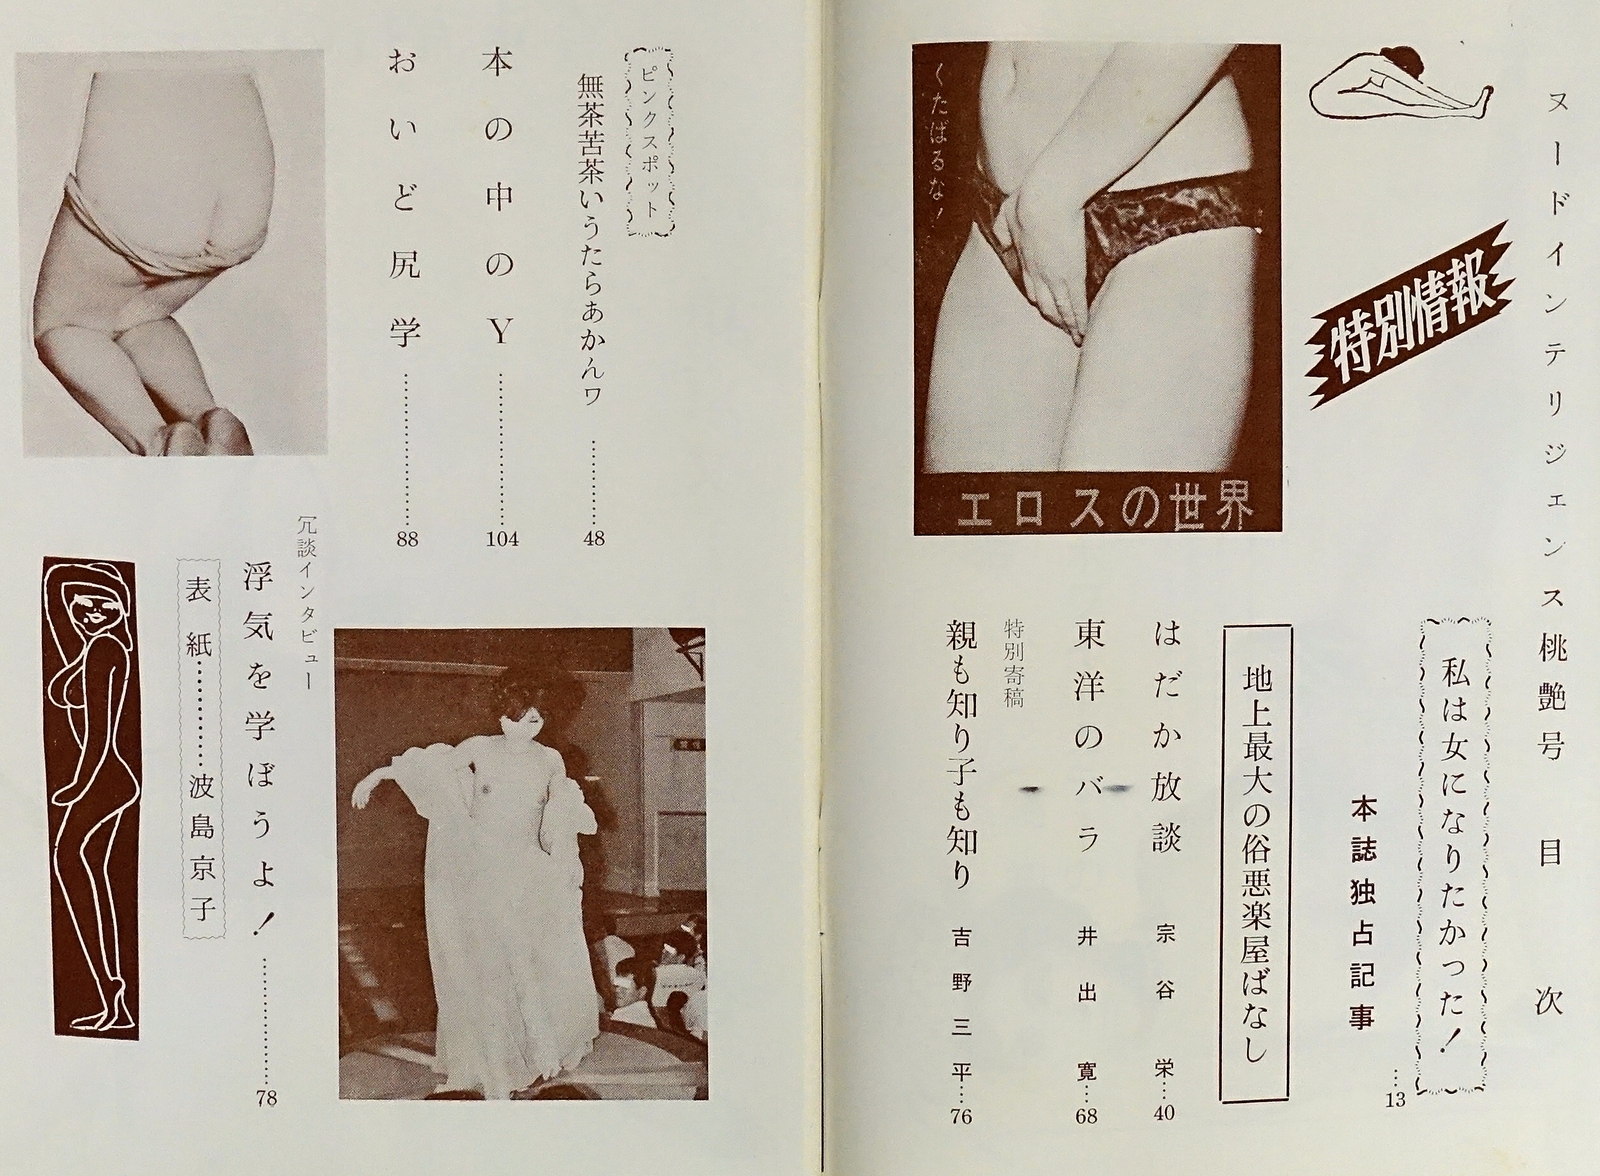 ヌードインテリジェンス桃艶号 目 次
私は女になりたかった！
本誌独占記事 …13
特別情報
地上最大の俗悪楽屋ばなし
はだか放談 宗谷 栄…40
東洋のバラ 井出 寛…68
特別寄稿
親も知り子も知り 吉野三平…76
くたばるな！
エロスの世界
ピンクスポット
無茶苦茶いうたらあかんワ…………48
本の中のY…………………104
おいど尻学…………………88
冗談インタビュー
浮気を学ぼうよ！…………………78
表 紙…………波島京子